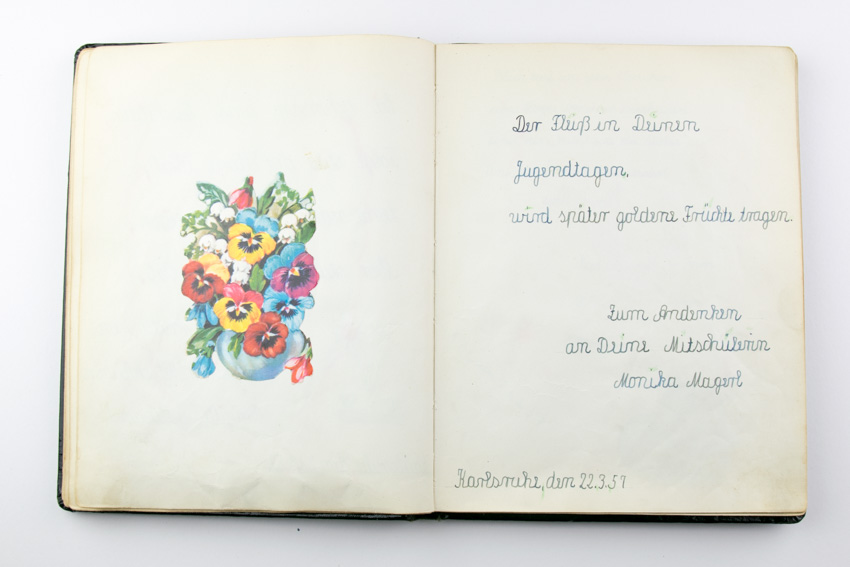 Der Fleiß in Deinen
Jugendtagen,
wird später goldene Früchte tragen.
Zum Andenken
an Deine Mitschülerin
Monika Magerl
Karlsruhe, den 22.3.57